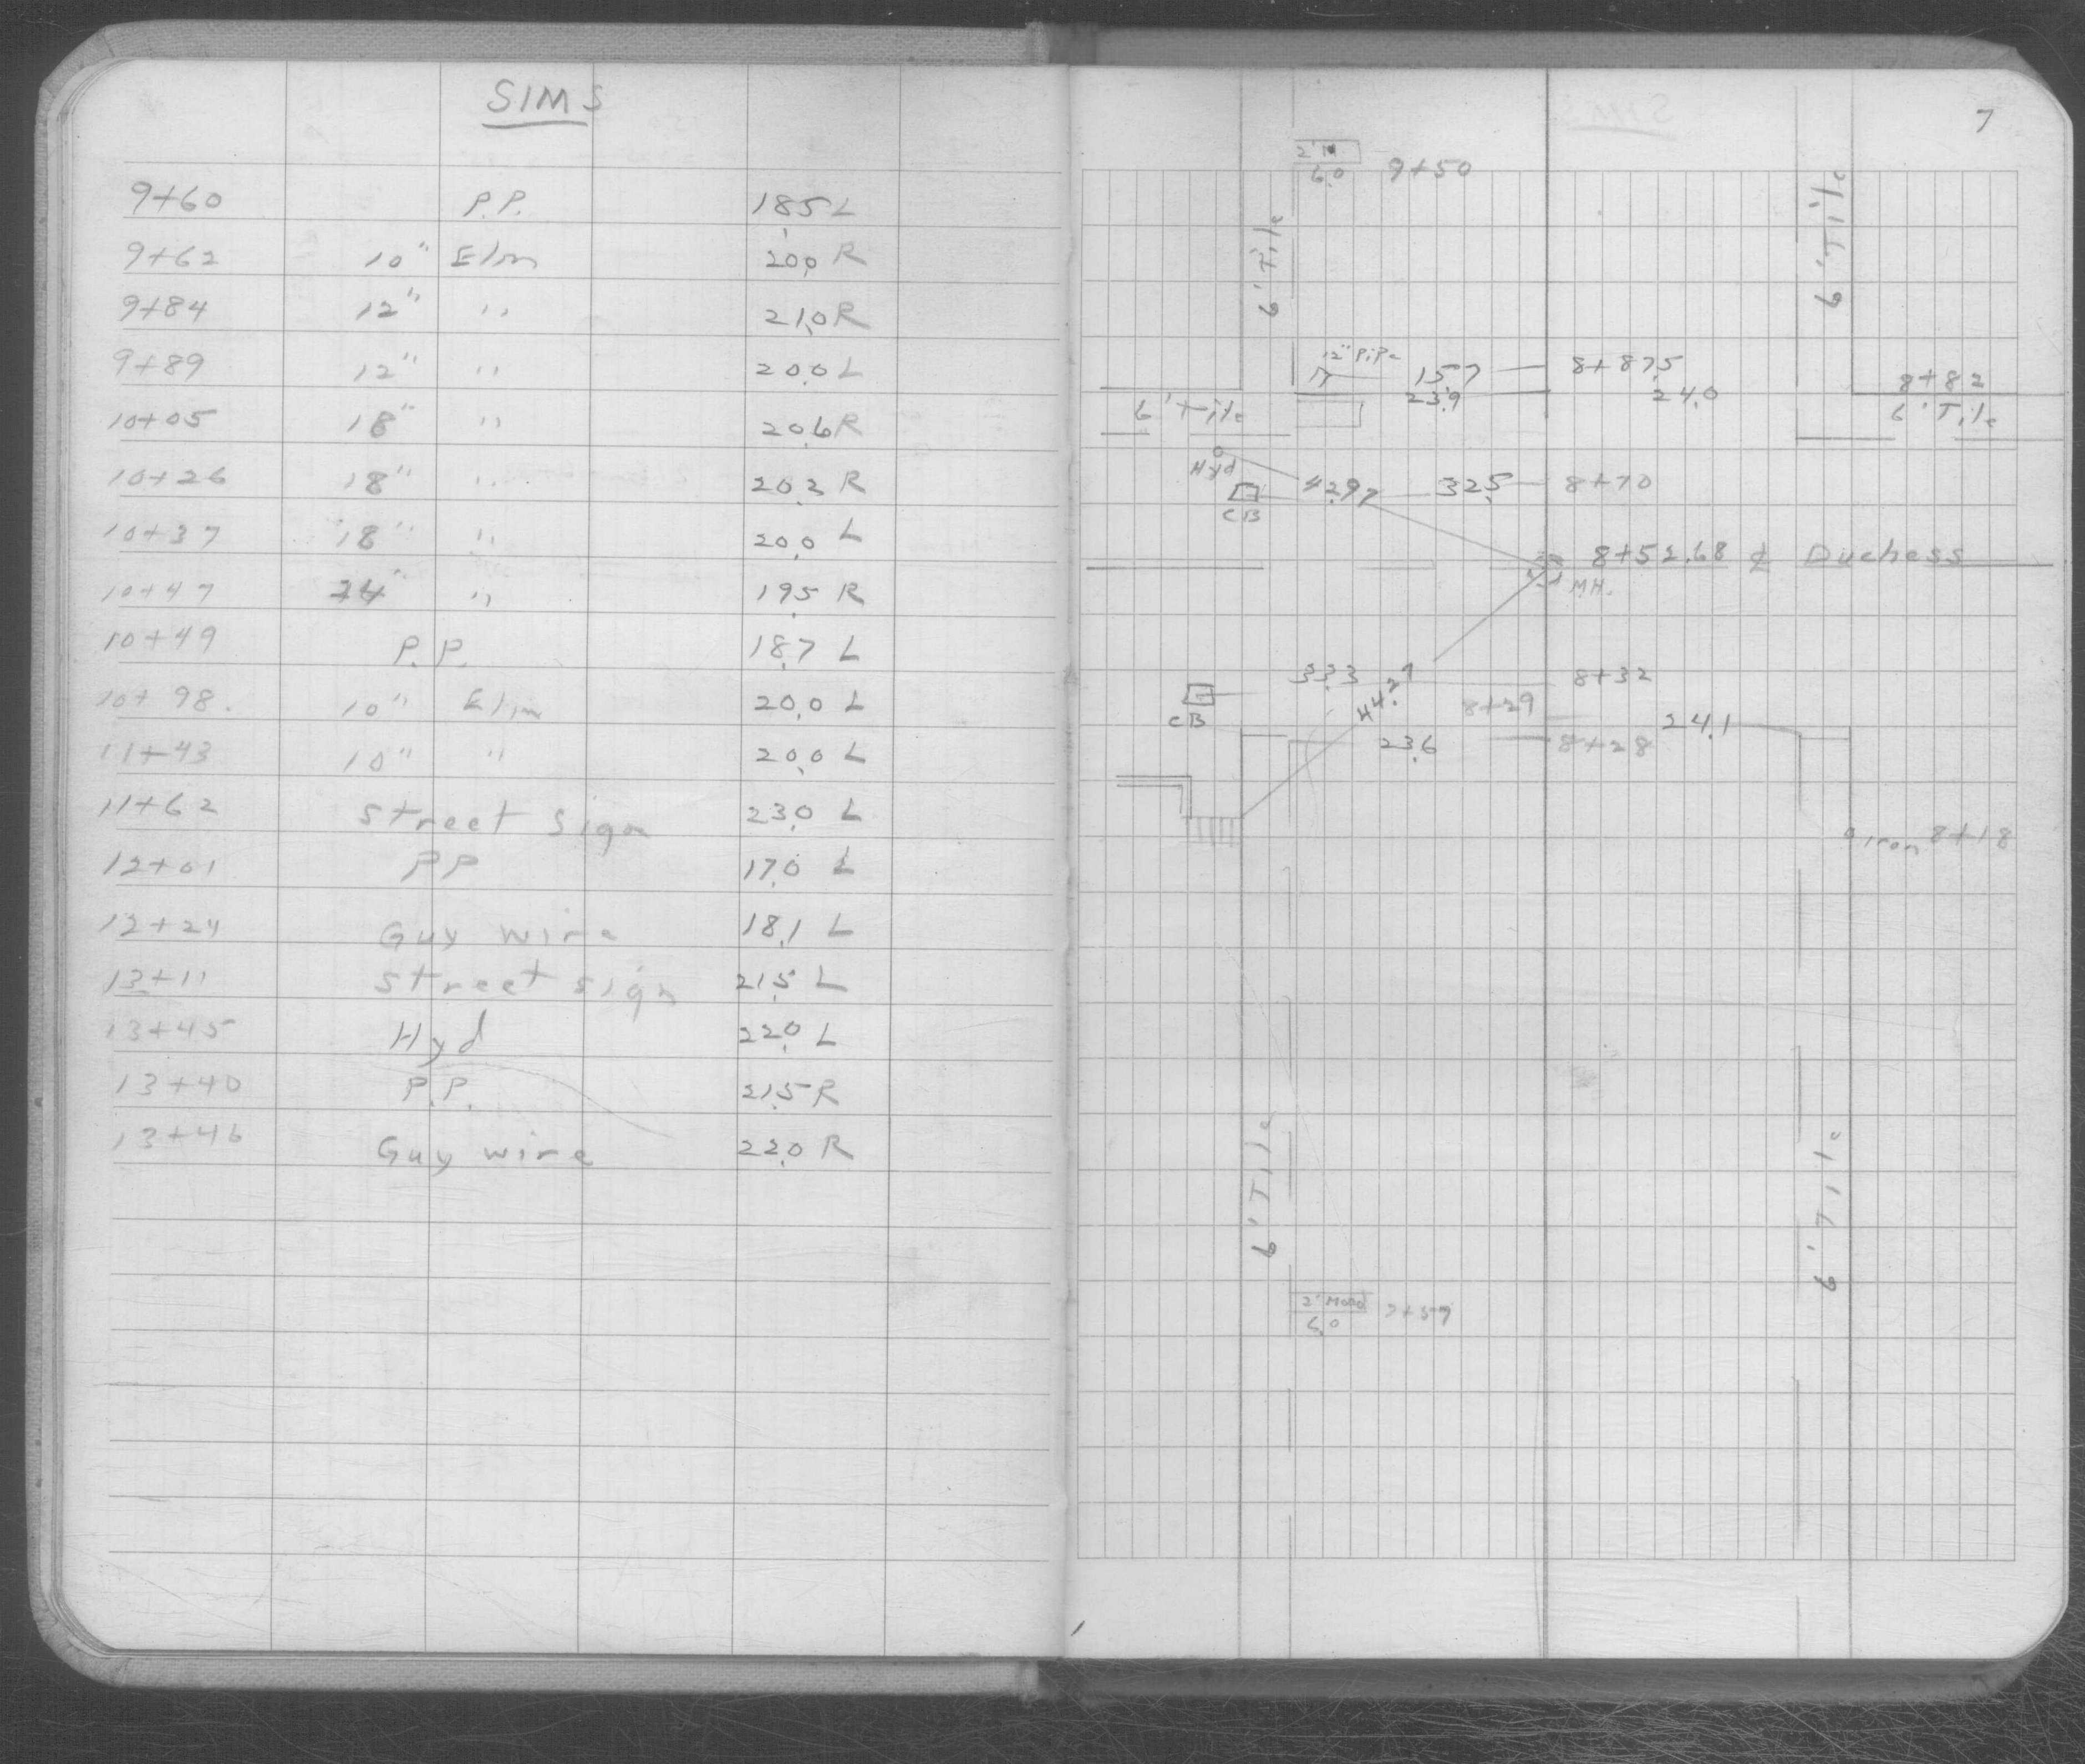 SIMS
9+60 P.P. 18.5 L
9+62 10" Elm 20.0 R
9+84 12" " 21.0 R
9+89 12" " 20.0 L
10+05 18" " 20.6 R
10+26 18" " 20.2 R
10+37 18" " 20.0 L
10+47 24" " 19.5 R
10+49 P.P. 18.7 L
10+98. 10" Elm 20.0 L
11+43 10" " 20.0 L
11+62 Street Sign 23.0 L
12+01 PP 17.0 L
12+24 Guy wire 18.1 L
13+11 Street sign 21.5 L
13+45 Hyd 22.0 L
13+40 P.P. 21.5 R
13+46 Guy wire 22.0 R
7
6.0 9+50
6' Tile
6' Tile
12" Pipe 15.7 8+87.5
23.9 24.0
8+82
6' Tile
6' Tile
Hyd
CB 42.97 32.5 8+70
8+52.68 ₵ Duchess
MH.
33.3 8+32
CB 44.27 8+29 24.1
23.6 8+28
Iron 8+18
6' Tile
6' Tile
2' Mono
6.0 7+57